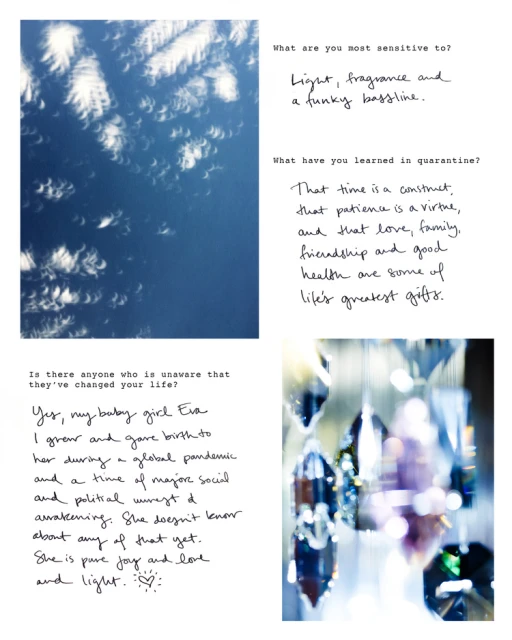 What are you most sensitive to?
Light, fragrance and
a funky bassline.
What have you learned in quarantine?
That time is a construct,
that patience is a virtue,
and that love, family,
friendship and good
health are some of
life's greatest gifts.
Is there anyone who is unaware that
they've changed your life?
Yes, my baby girl Eva
I grew and gave birth to
her during a global pandemic
and a time of major social
and political unrest &
awakening. She doesn't know
about any of that yet.
She is pure joy and love
and light.